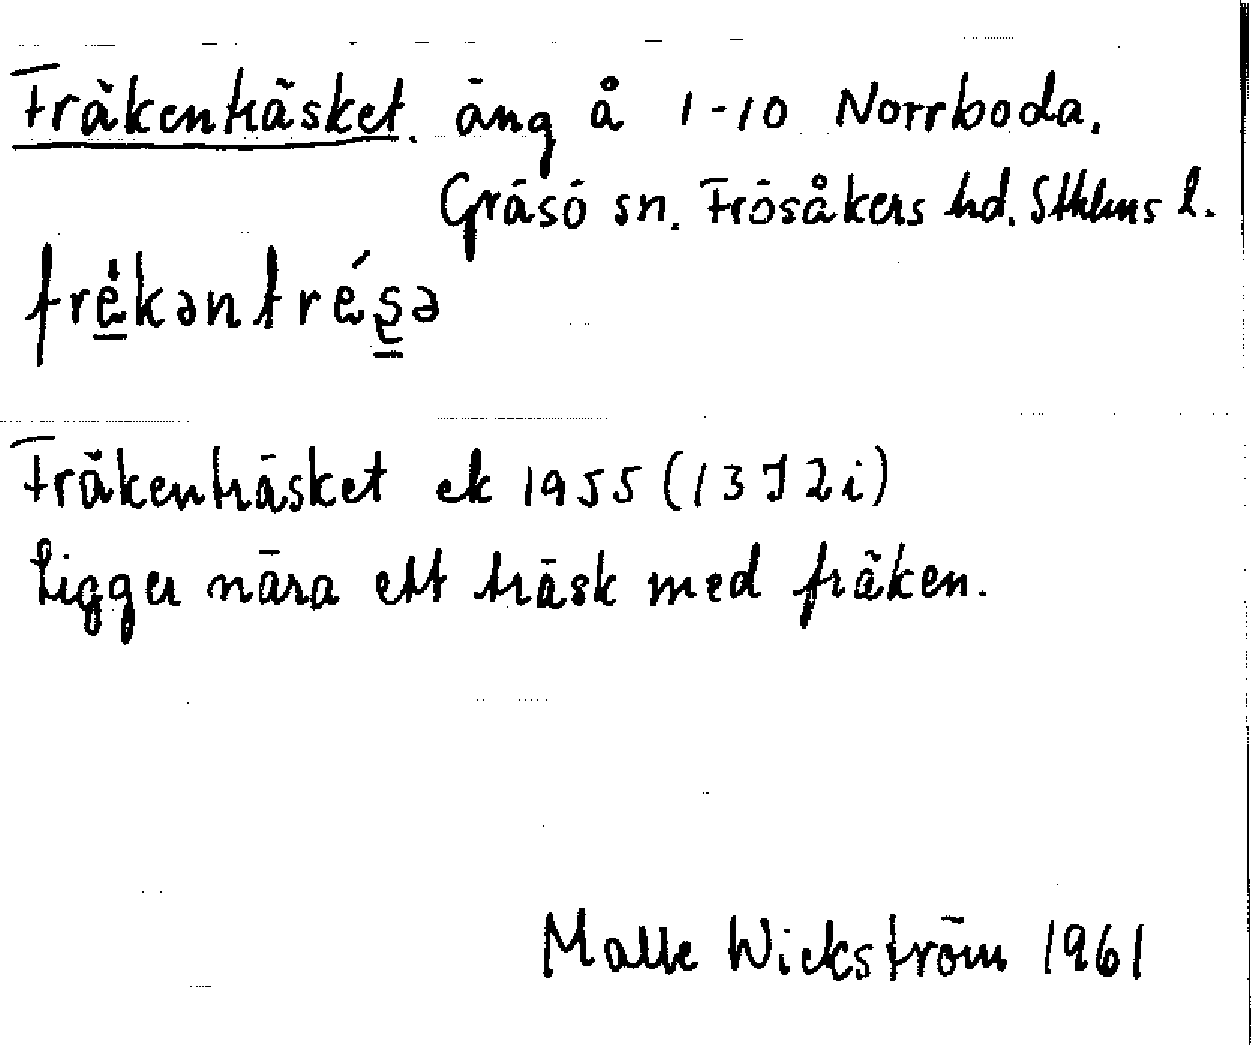 Fräkenträsket. äng å 1-10 Norrboda.
Gräsö sn. Frösåkers hd. Sthlms l.
frèkəntrésə
Fräkenträsket ek 1955 (13J2i)
Ligger nära ett träsk med fräken.
Malle Wickström 1961